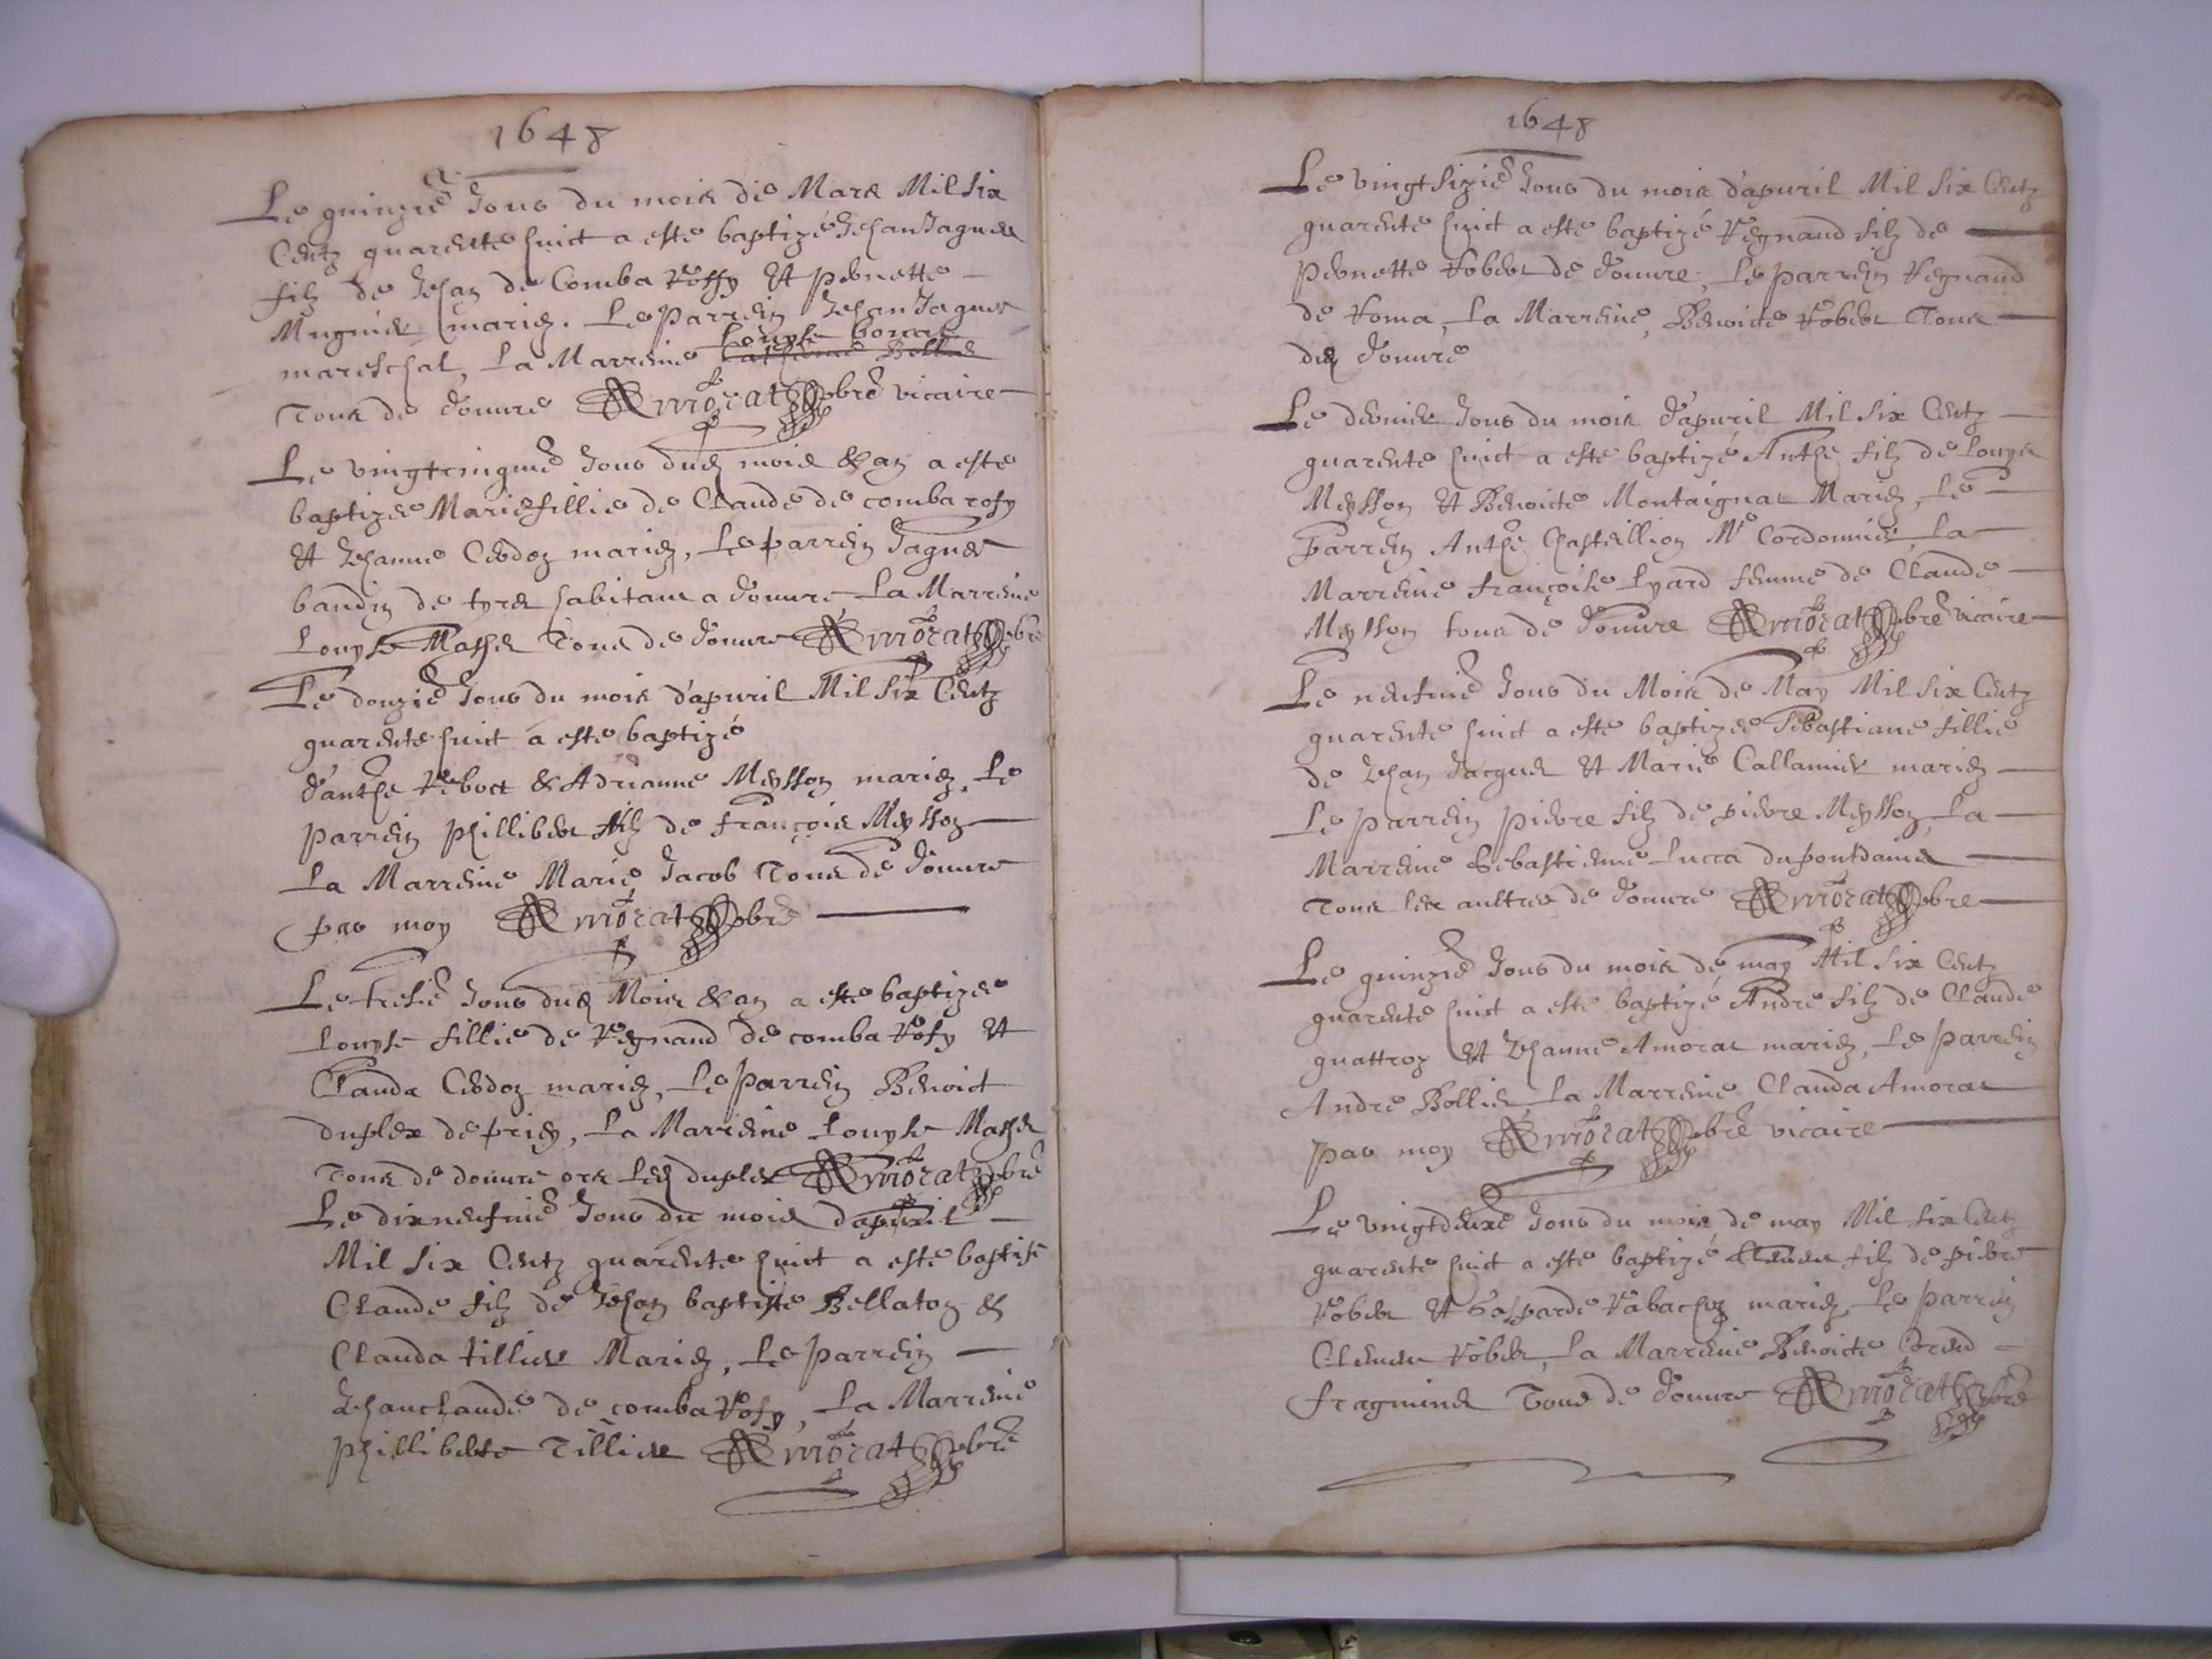 1648
Le quinzie Jour du mois de Mars Mil six
Centz quarente huict a este baptizé Jehan Jaques
filz de Jehan de Comba Rossy Et pernette
Mugnier mariez. Le Parrein Jehan Jaques
mareschal, La Marreine Louyse
Tous de Douure Amorat pbre vicaire
Le vingtcinqme Jour dud mois & an a este
baptizee Marie fillie de Claude de comba rosy
Et Jehanne Cerdoz mariez, Le parrein Jaques
baudin de habitant a Douure La Marreine
Louyse Tous de Douure Amorat pbre
Le douzie Jour du mois d'apuril Mil six Centz
quarente huict a este baptizé
d'anthe Reboct & Adrianne Meysson mariez, Le
parrein phillibert filz de françois Meysson
La Marreine Marie Jacob Tous de Douure
par moy Amorat pbre
Le tresie Jour dud Mois & an a este baptizee
Louyse fillie de Regnaud de comba Rosy Et
Clauda Cerdoz mariez, Le Parrein Benoict
duplex de priey, La Marreine Louyse
Tous de douure ors led duplex Amorat pbre
Le dixneufuie Jour du mois dapuril
Mil six Centz quarente huict a este baptisé
Claude filz de Jehan baptiste Bellaton &
Clauda tillier Mariez, Le parrein
Jehanclaude de comba Rosy, La Marreine
philliberte Tillier Amorat pbre
1648
Le vingtsizie Jour du mois d'apuril Mil six Centz
quarente huict a este baptizé Regnaud filz de
pernette Robert de Douure, Le parrein Regnaud
de Roma, La Marreine, Benoicte Robert Tous
dud Douure
Le dernier Jour du mois d'apuril Mil six Centz
quarente huict a este baptizé Anthe filz de Louys
Meysson Et Benoicte Montaignat Mariez, Le
Parrein Anthe Chastillion Mr Cordonnier, La
Marreine françoise Lyard femme de Claude
Meysson tous de Douure Amorat pbre vicaire
Le neufuie Jour du Mois de May Mil six Centz
quarente huict a este baptizee Sebastiane fillie
de Jehan Jacques Et Marie Callamier mariez
Le parrein pierre filz de pierre Meysson, La
Marreine Sebastienne Lucca du pontdains
Tous les aultres de Douure Amorat pbre
Le quinzie Jour du mois de may Mil six Centz
quarente huict a este baptizé André filz de Claude
quattroz Et Jehanne Amorat mariez, Le parrein
André Bollie, La Marreine Clauda Amorat
par moy Amorat pbre vicaire
Le vingtdeuxe Jour du mois de may Mil six Centz
quarente huict a este baptizé Clement filz de pierre
Robert Et Gasparde Rabachoz mariez, Le parrein
Clement Robert, La Marreine Benoicte
Tous de Douure Amorat pbre